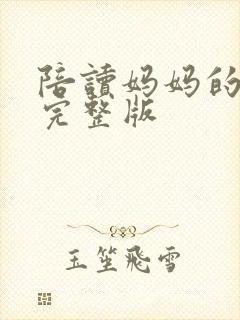 陪讀妈妈的
完整版
玉笙飛雪